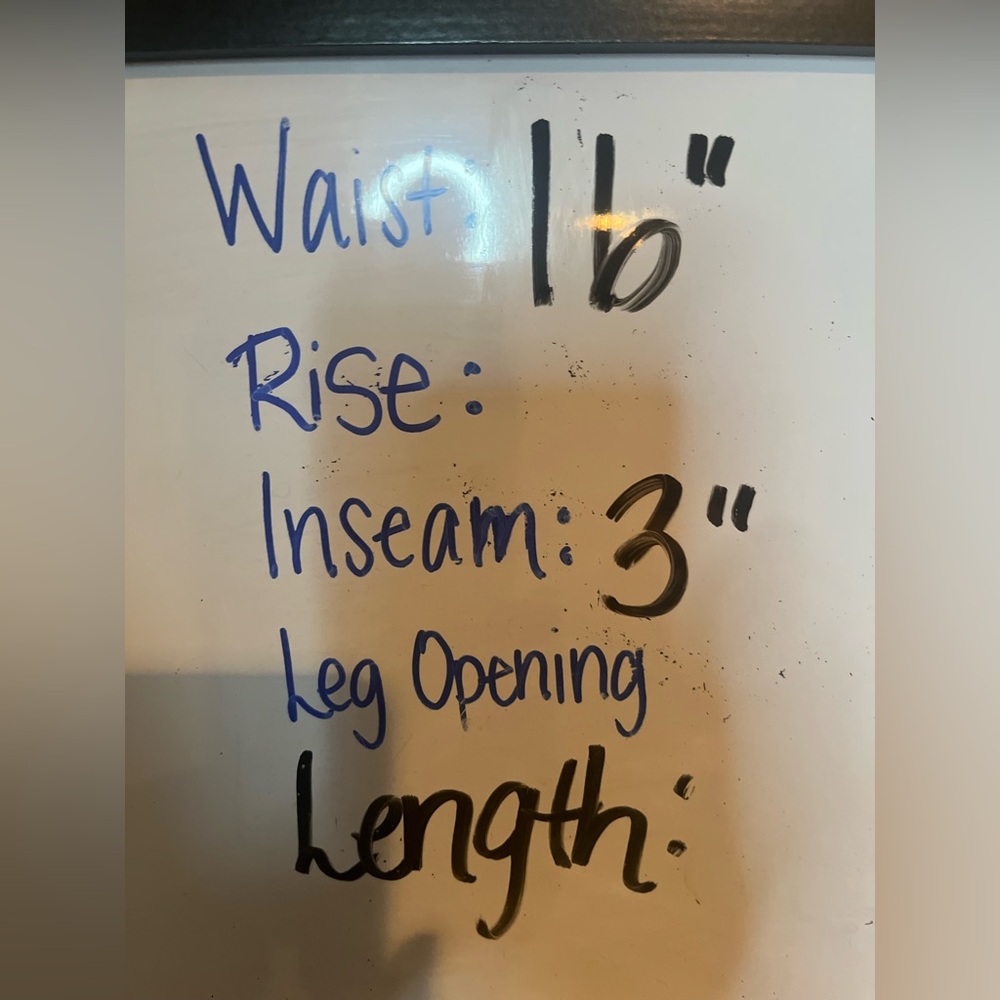 Waist: 16"
Rise:
Inseam: 3"
Leg Opening
Length: